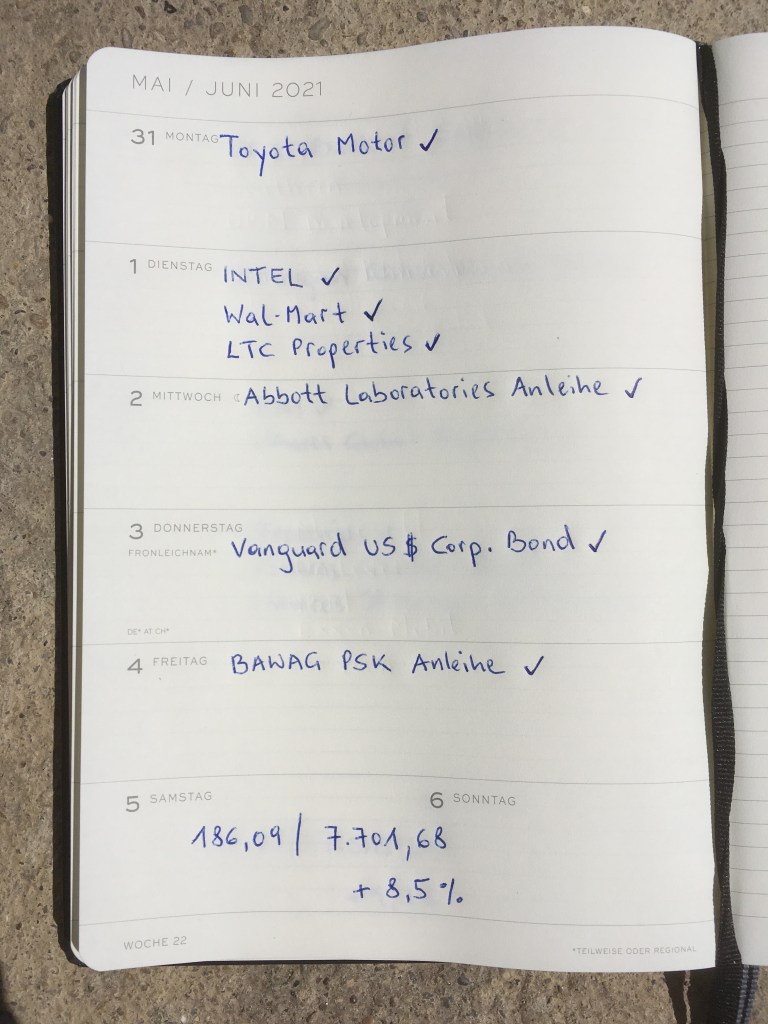 MAI / JUNI 2021
31 MONTAG Toyota Motor ✓
1 DIENSTAG INTEL ✓
Wal-Mart ✓
LTC Properties ✓
2 MITTWOCH ☾ Abbott Laboratories Anleihe ✓
3 DONNERSTAG
FRONLEICHNAM* Vanguard US $ Corp. Bond ✓
DE* AT CH*
4 FREITAG BAWAG PSK Anleihe ✓
5 SAMSTAG 6 SONNTAG
186,09 / 7.701,68
+ 8,5 %
WOCHE 22 *TEILWEISE ODER REGIONAL